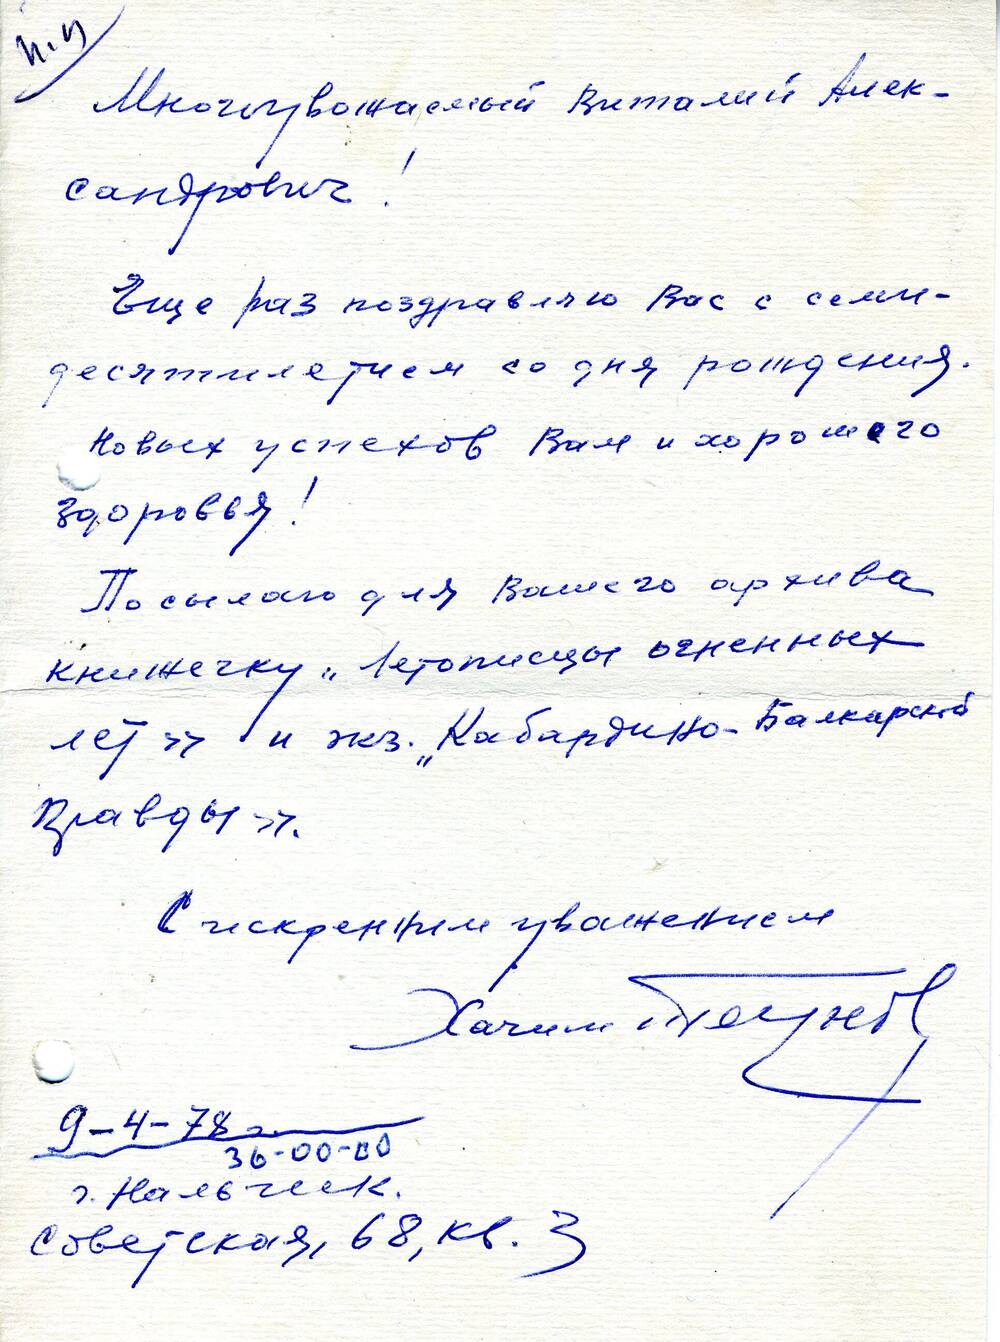 Многоуважаемый Виталий Алек-
сандрович!
Еще раз поздравляю Вас с семи-
десятилетием со дня рождения.
Новых успехов Вам и хорошего
здоровья!
Посылаю для Вашего архива
книжечку „Летописцы огненных
лет» и экз. „Кабардино-Балкарской
правды».
С искренним уважением
Хачим Теунов
9-4-78 г.
36-00-80
г. Нальчик.
Советская, 68, кв. 3